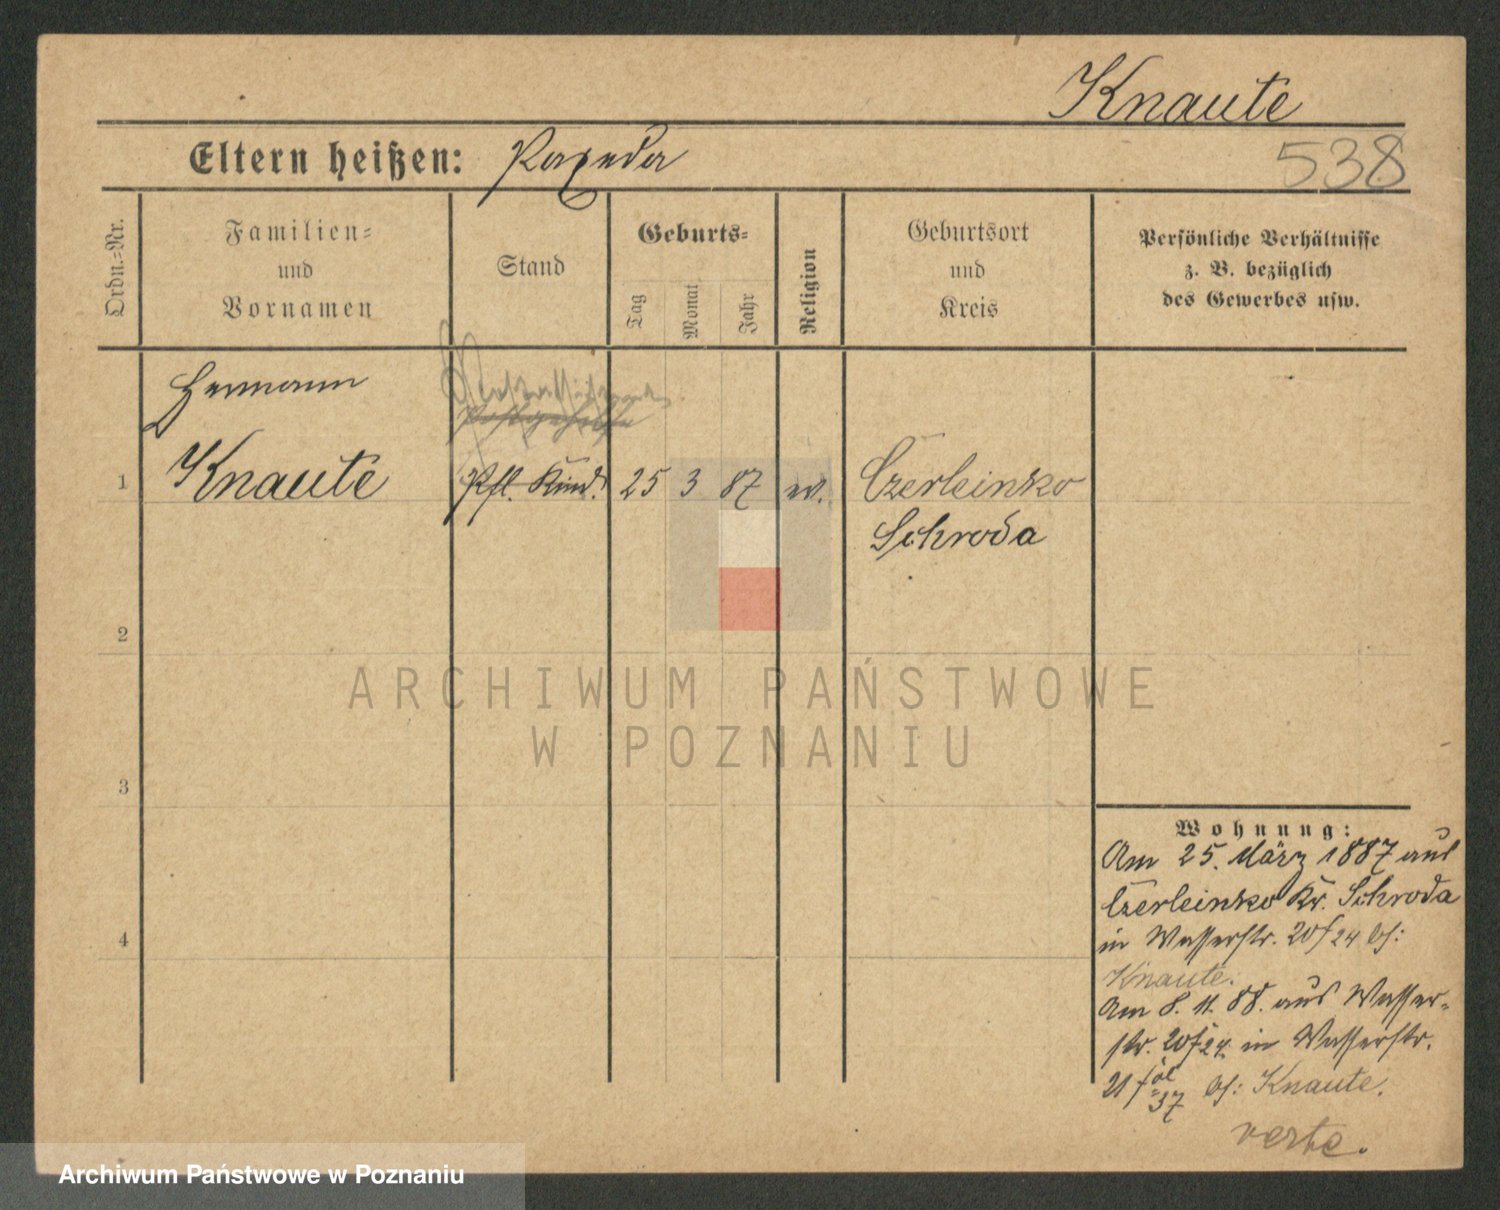 Knaute
Eltern heißen:
538
Ordn.-Nr.
Familien-
und
Vornamen
Stand
Geburts-
Tag
Monat
Jahr
Religion
Geburtsort
und
Kreis
Persönliche Verhältnisse
z. B. bezüglich
des Gewerbes usw.
Hermann
1 Knaute Pfl. Kind. 25 3 87 ev. Czerleinsko
Schroda
2
3
4
ARCHIWUM PAŃSTWOWE
W POZNANIU
Wohnung:
Am 25. März 1887 aus
Czerleinsko Kr. Schroda
in Wasserstr. 20/24 bf:
Knaute.
Am 8. 11. 88. aus Wasser-
str. 20/24 in Wasserstr.
21 37 bf: Knaute.
verte.
Archiwum Państwowe w Poznaniu